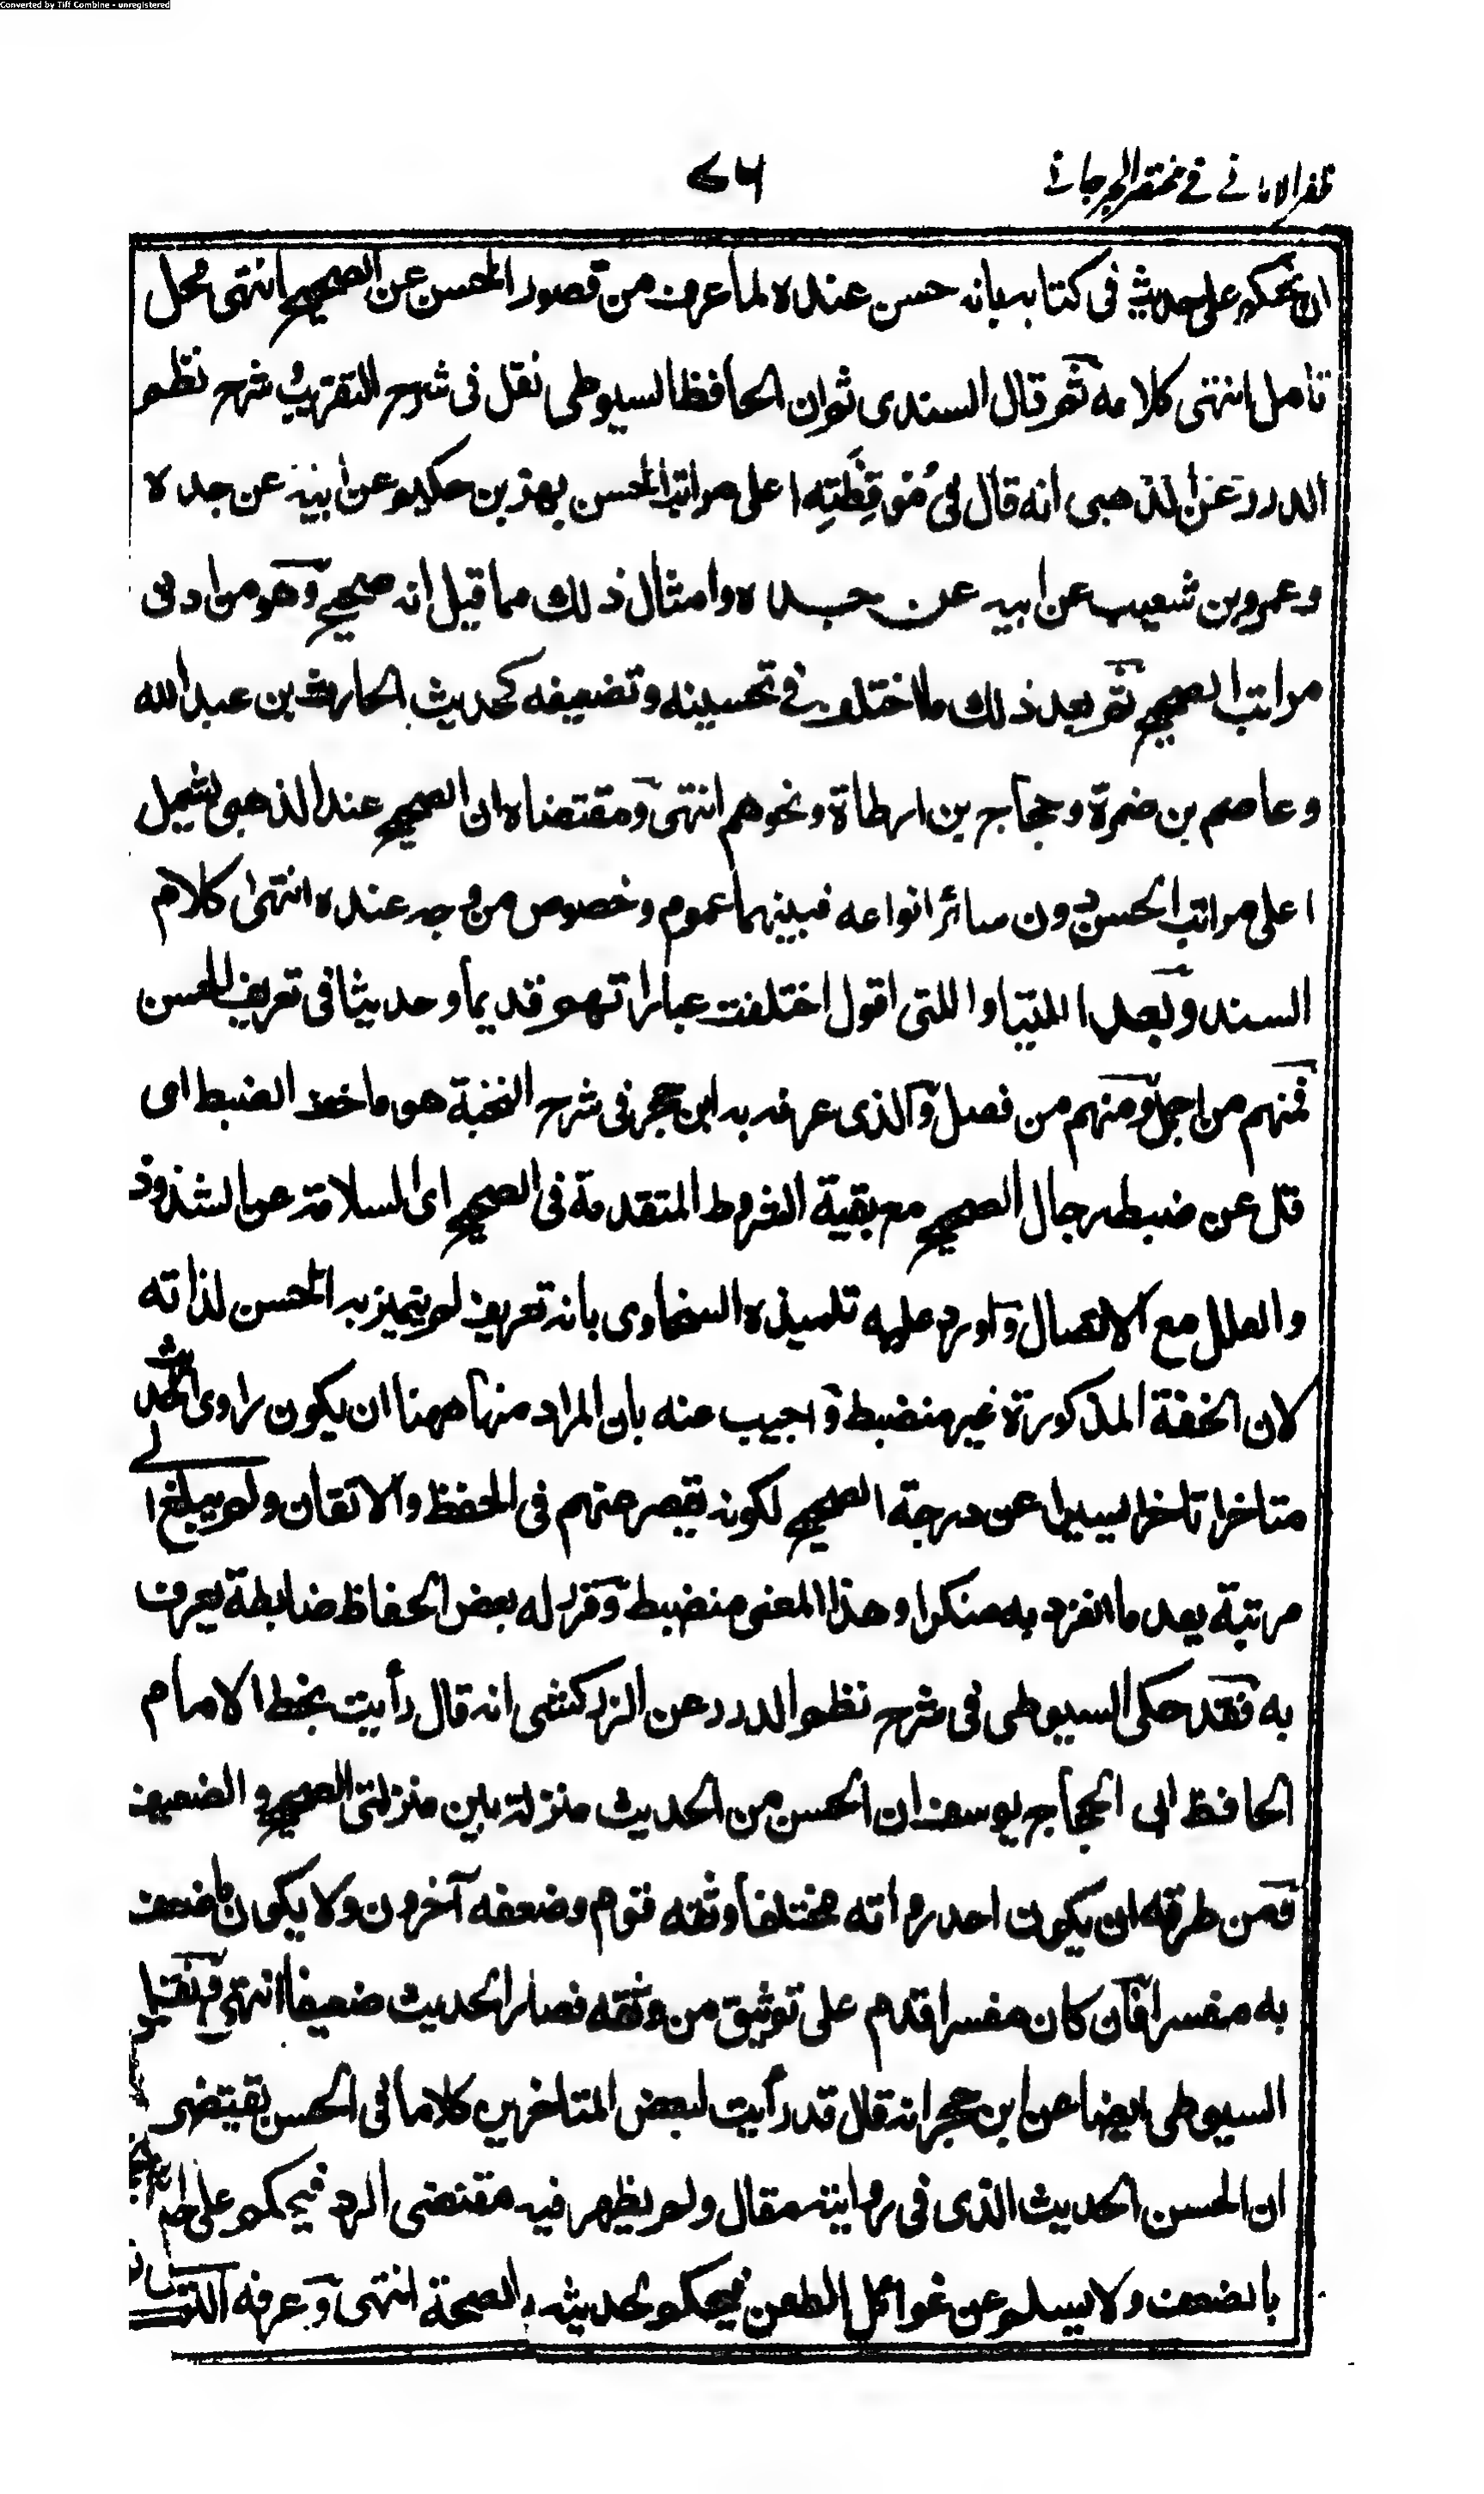 Converted by Tiff Combine - unregistered
ظفر الامانے فے مختصر الجرجانے
٧٦
ان يحكم على حديث في كتابه بانه حسن عنده لما عرف من قصور الحسن عن الصحيح انتهى محل
تامل انتهى كلامه ثم قال السندى ثم ان الحافظ السيوطى نقل فى شرح التقريب شرح نظم
الدرر عن الذهبى انه قال فى مُوقِظَتِه اعلى مراتب الحسن بهز بن حكيم عن ابيه عن جده
وعمرو بن شعيب عن ابيه عن جده وامثال ذلك مما قيل انه صحيح وهو من ادنى
مراتب الصحيح ثم بعد ذلك ما اختلف فے تحسينه وتضعيفه كحديث الحارث بن عبد الله
وعاصم بن ضمرة وحجاج بن ارطاة ونحوهم انتهى ومقتضاه ان الصحيح عند الذهبى يشمل
اعلى مراتب الحسن دون سائر انواعه فبينهما عموم وخصوص من وجه عنده انتهى كلام
السند وبعد اللتيا واللتى اقول اختلفت عباراتهم قديما وحديثا فى تعريف الحسن
فمنهم من اجمل ومنهم من فصل والذى عرفه به ابن حجر فى شرح النخبة هو ما خف الضبط اى
قل عن ضبط رجال الصحيح مع بقية الشروط المتقدمة فى الصحيح اى السلامة عن الشذوذ
والعلل مع الاتصال واورد عليه تلميذه السخاوى بانه تعريف لم يتميز به الحسن لذاته
لان الخفة المذكورة غير منضبط واجيب عنه بان المراد منها ههنا ان يكون راوى الحديث
متاخرا تاخرا يسيرا عن درجة الصحيح لكونه يقصر عنهم فى الحفظ والاتقان ولم يبلغ الى
مرتبة يعد ما انفرد به منكرا وهذا المعنى منضبط وقرر له بعض الحفاظ ضابطة يعرف
به فقد حكى السيوطى فى شرح نظم الدرر عن الزركشى انه قال رأيت بخط الامام
الحافظ ابى الحجاج يوسف ان الحسن من الحديث منزلة بين منزلتى الصحيح والضعيف
فمن طرقه ان يكون احد رواته مختلفا وثقه قوم وضعفه آخرون ولا يكون ما ضعف
به مفسرا فان كان مفسرا قدم على توثيق من وثقه فصار الحديث ضعيفا انتهى ونقل
السيوطى ايضا عن ابن حجر انه قال قد رأيت لبعض المتاخرين كلاما فى الحسن يقتضى
ان الحسن الحديث الذى فى روايته مقال ولم يظهر فيه مقتضى الرد فيحكم على
بالضعف ولا يسلم عن غوائل الطعن فيحكم لحديثه بالصحة انتهى وعرفه